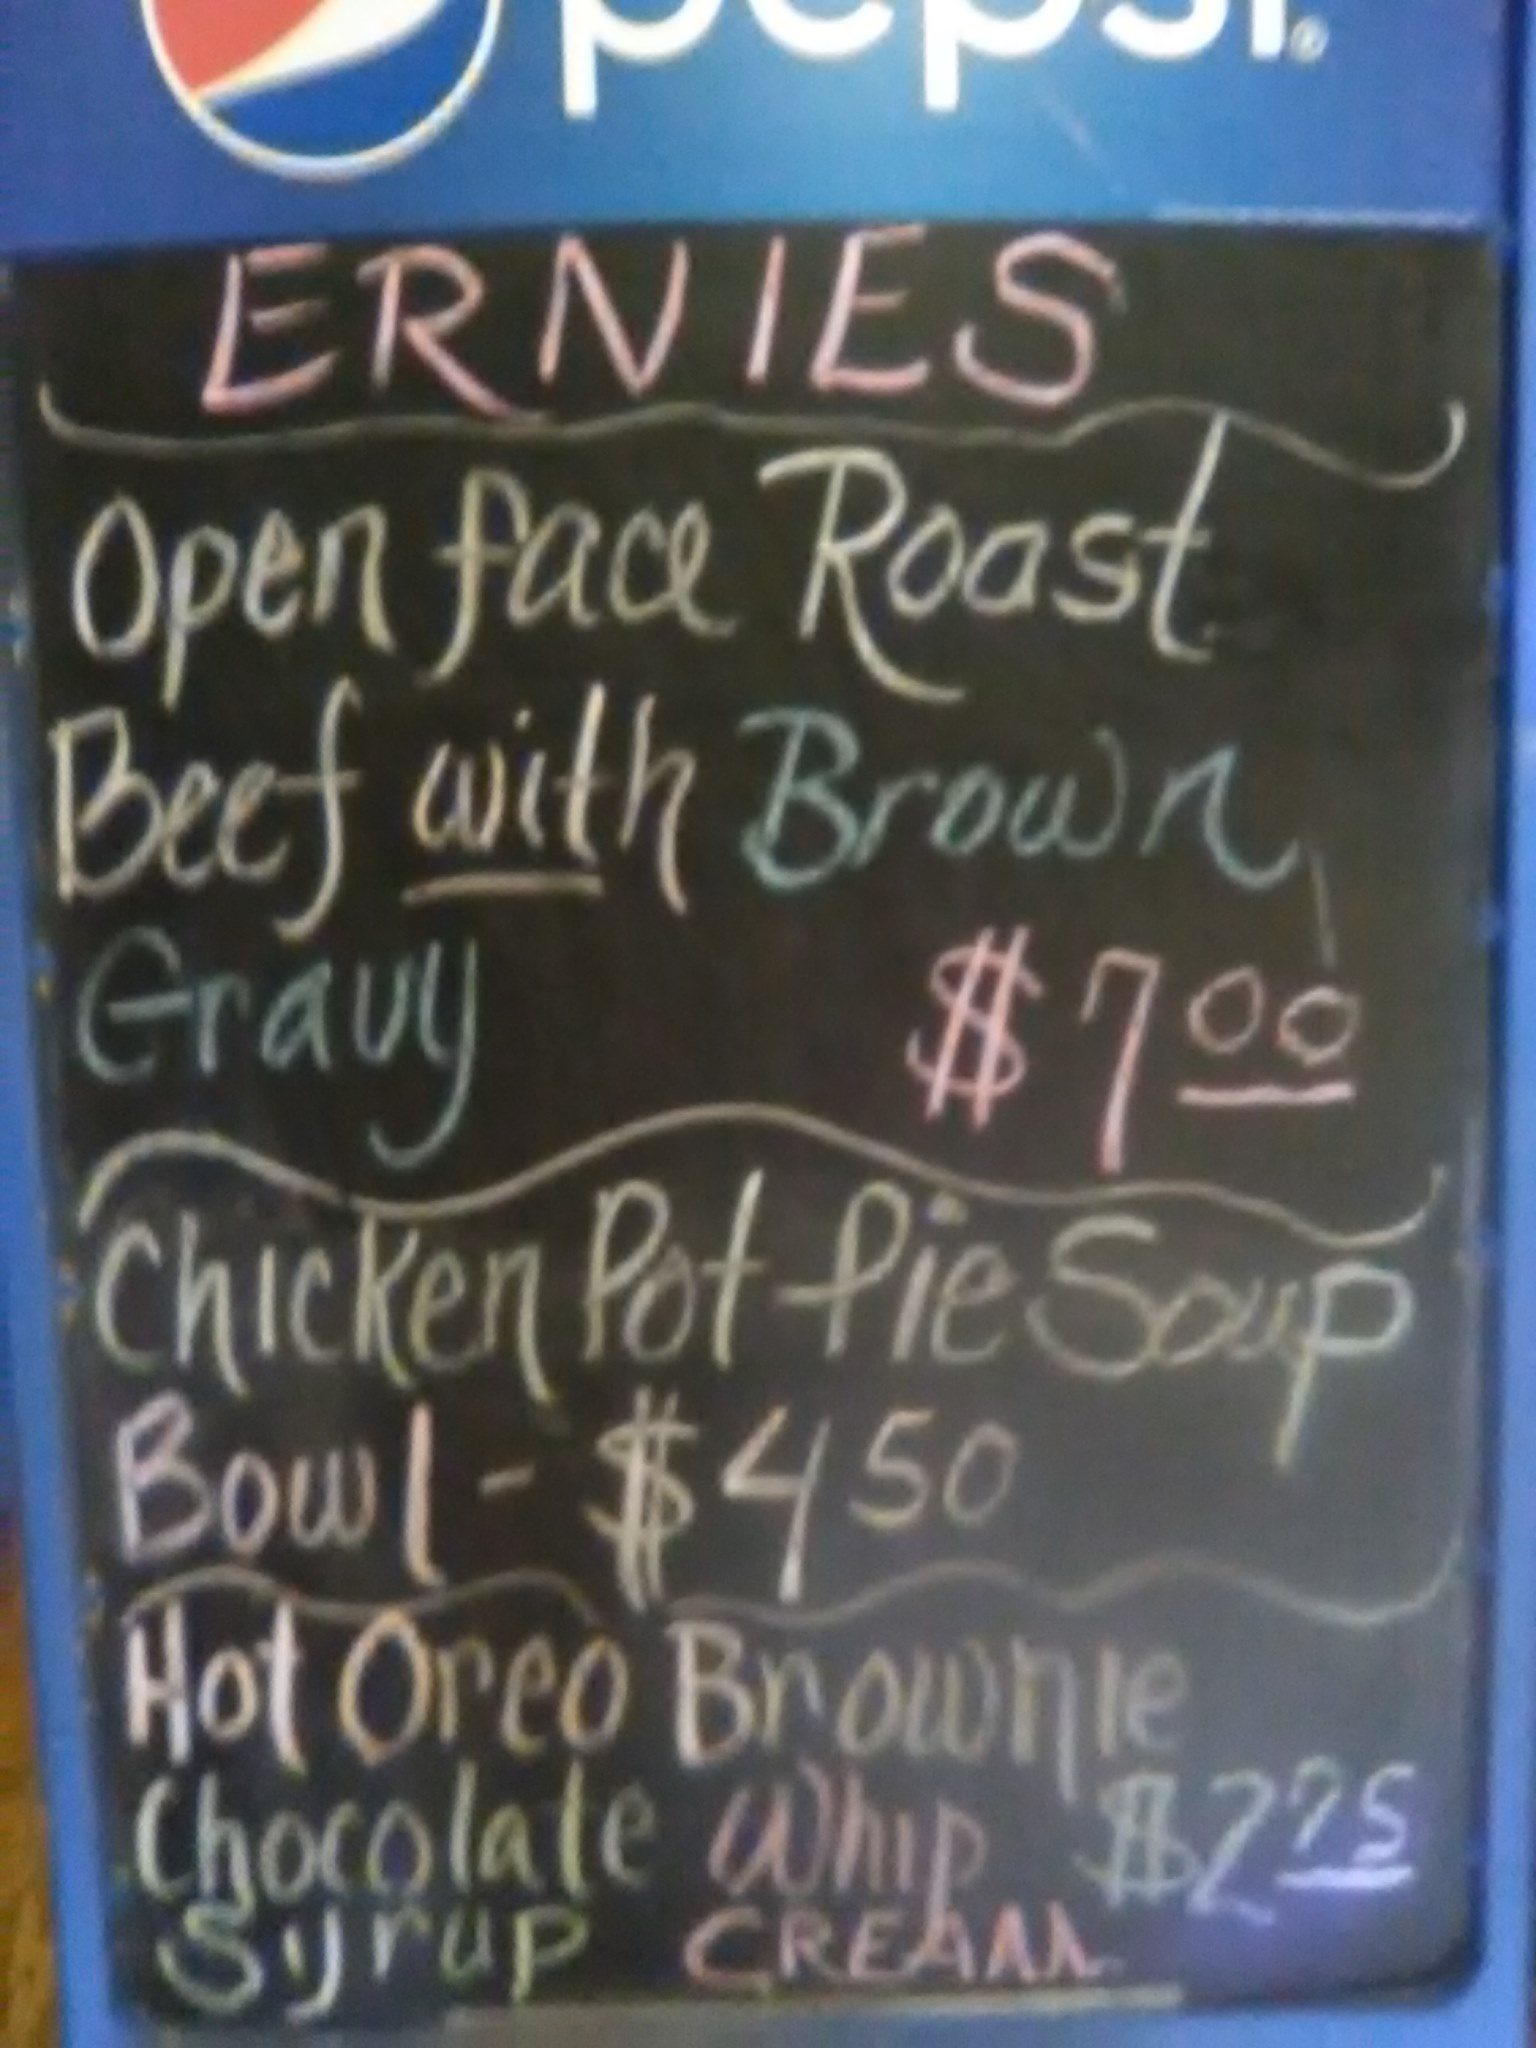 pepsi®
ERNIES
Open face Roast
Beef with Brown
Gravy $7 00
Chicken Pot Pie Soup
Bowl - $4 50
Hot Oreo Brownie
Chocolate Whip $2 75
Syrup CREAM